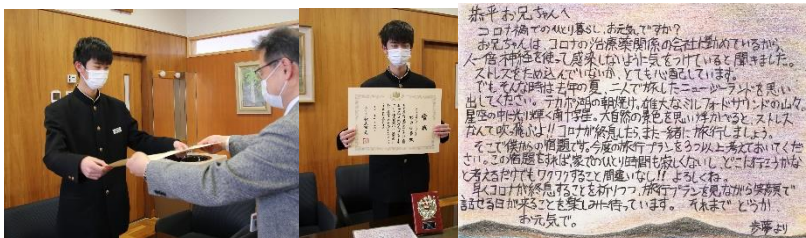 賞状
恭平お兄ちゃんへ
コロナ禍でのひとり暮らし、お元気ですか?
お兄ちゃんは、コロナの治療薬関係の会社に勤めているから、
人一倍神経を使って感染しないように気をつけていると聞きました。
ストレスをため込んでいないか、とても心配しています。
でもそんな時は去年の夏、二人で旅したニュージーランドを思い
出してください。テカポ湖の朝焼け、雄大なミルフォードサウンドの山々、
星空の中に光り輝く南十字星。大自然の景色を思い浮かべると、ストレス
なんて吹き飛ぶよ!!コロナが終息したら、また一緒に旅行しましょう。
そこで僕からの宿題です。今度の旅行プランを3つ以上考えておいてくだ
さい。この宿題をすれば家でのひとり時間も寂しくないし、どこに行こうかな
と考えるだけでもワクワクすること間違いなし!!よろしくね。
早くコロナが終息することを祈りつつ、旅行プランを見ながら笑顔で
話せる日が来ることを楽しみに待っています。それまでどうか
お元気で。
歩夢より